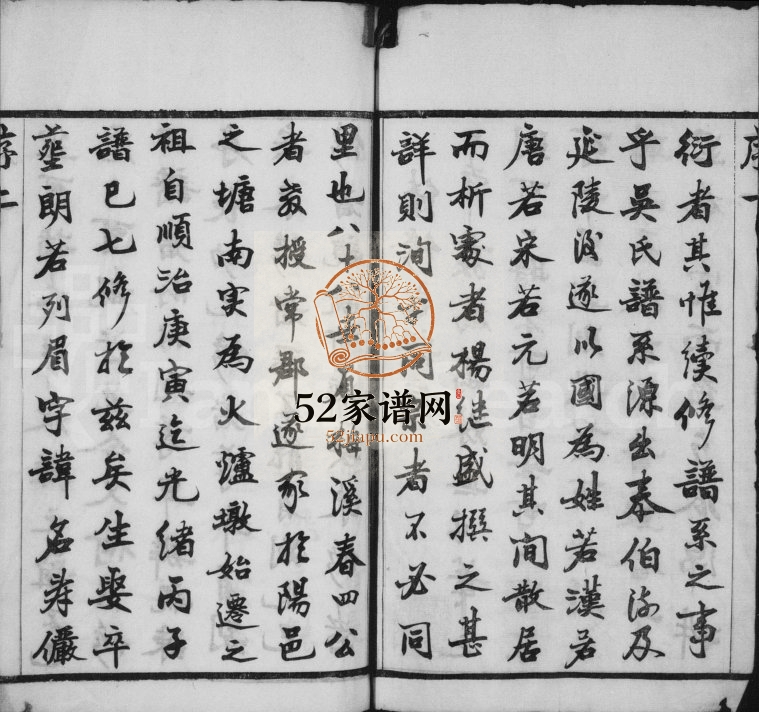 序一
衍者其惟續修譜系之事
乎吳氏譜系源出泰伯流及
延陵後遂以國為姓若漢若
唐若宋若元若明其間散居
而析處者楊繼盛撰之甚
詳則洵 者不必同
里也八十 溪春四公
者教授常郡遂家於陽邑
之塘南实為火爐墩始遷之
祖自順治庚寅迄光緒丙子
譜已七修於兹矣生娶卒
塟朗若列眉字諱名葬儼
序二
52家谱网
52jiapu.com